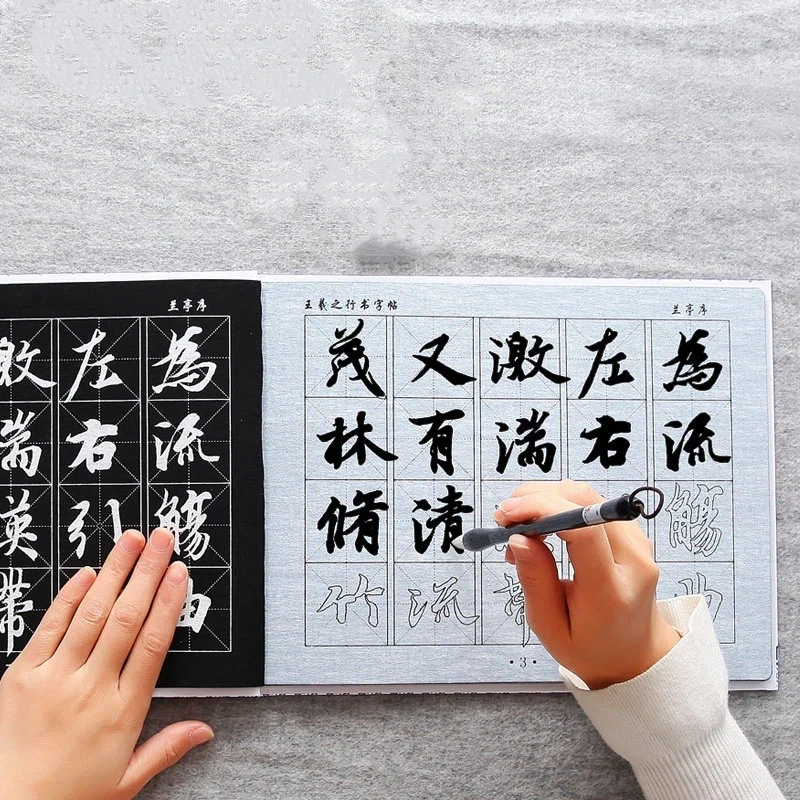 兰亭序
湍
帶
左右引
為流觴曲
王羲之行书字帖
兰亭序
茂林脩竹
又有清流
激湍
帶
左右
為流觴曲
3